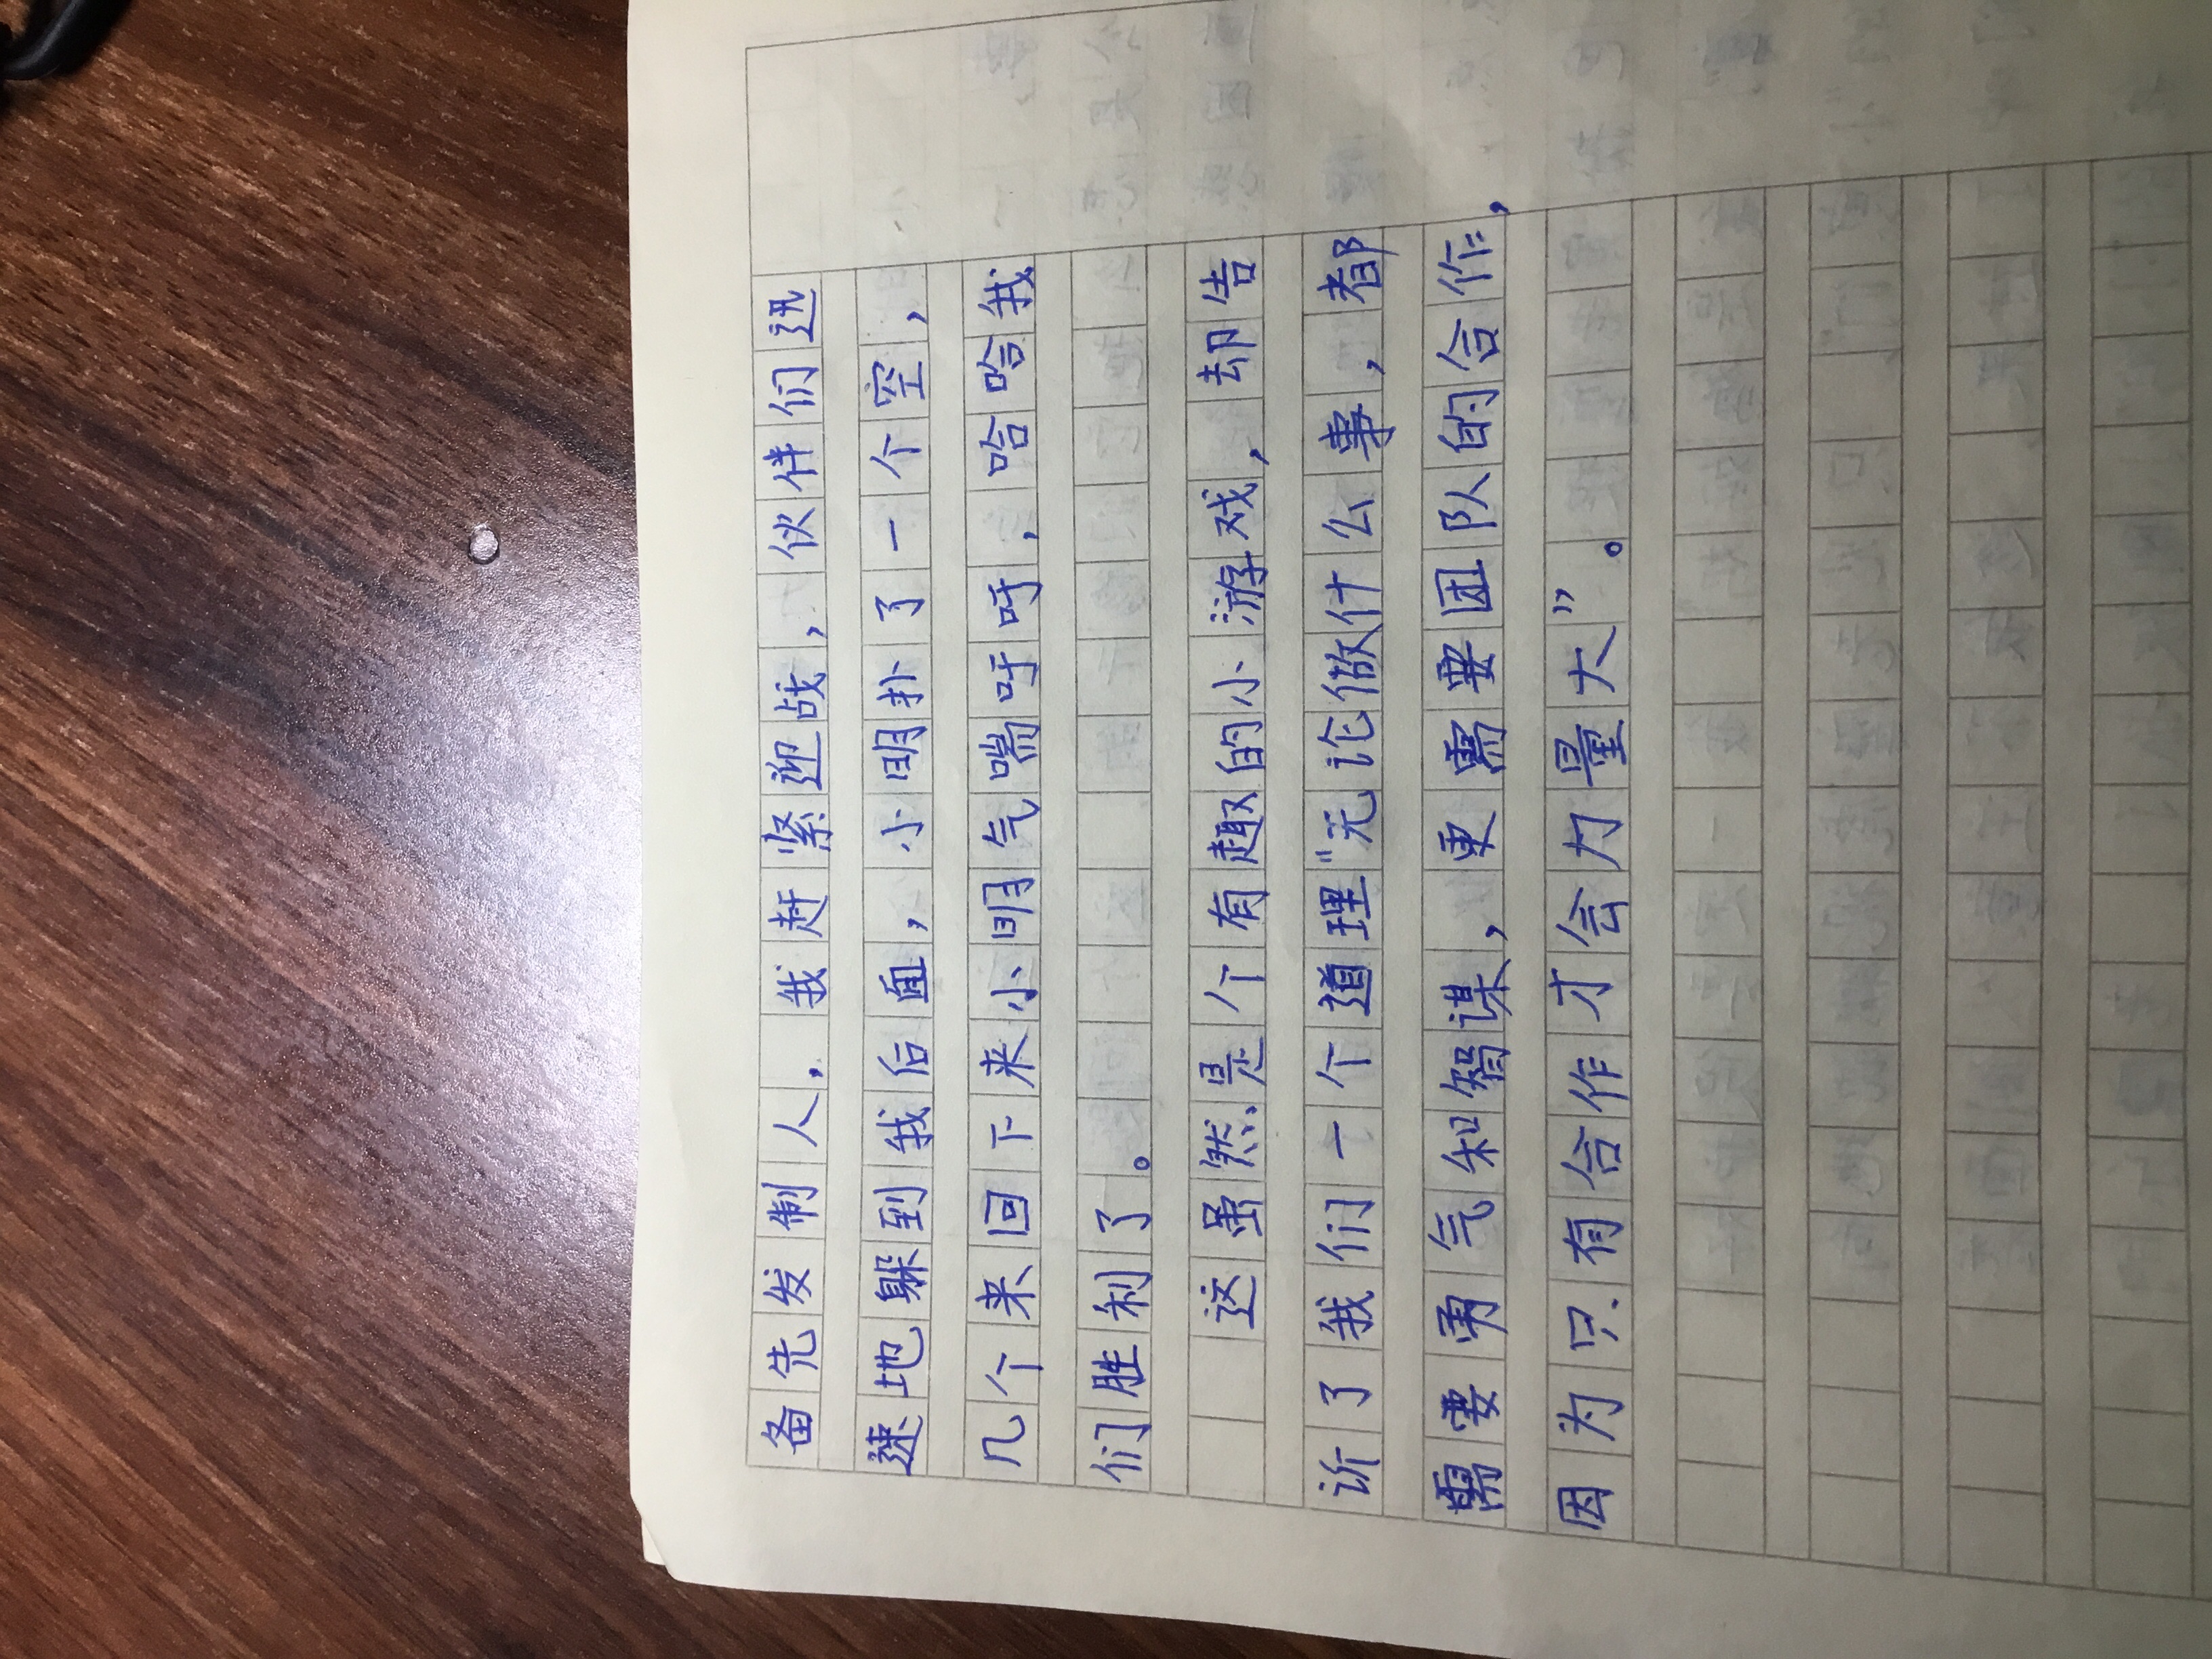 备先发制人，我赶紧迎战，伙伴们迅
速地躲到我后面，小明扑了一个空，
几个来回下来小明气喘呼呼，哈哈我
们胜利了。
这虽然是个有趣的小游戏，却告
诉了我们一个道理“无论做什么事，都
需要勇气和智谋，更需要团队的合作，
因为只有合作才会力量大”。